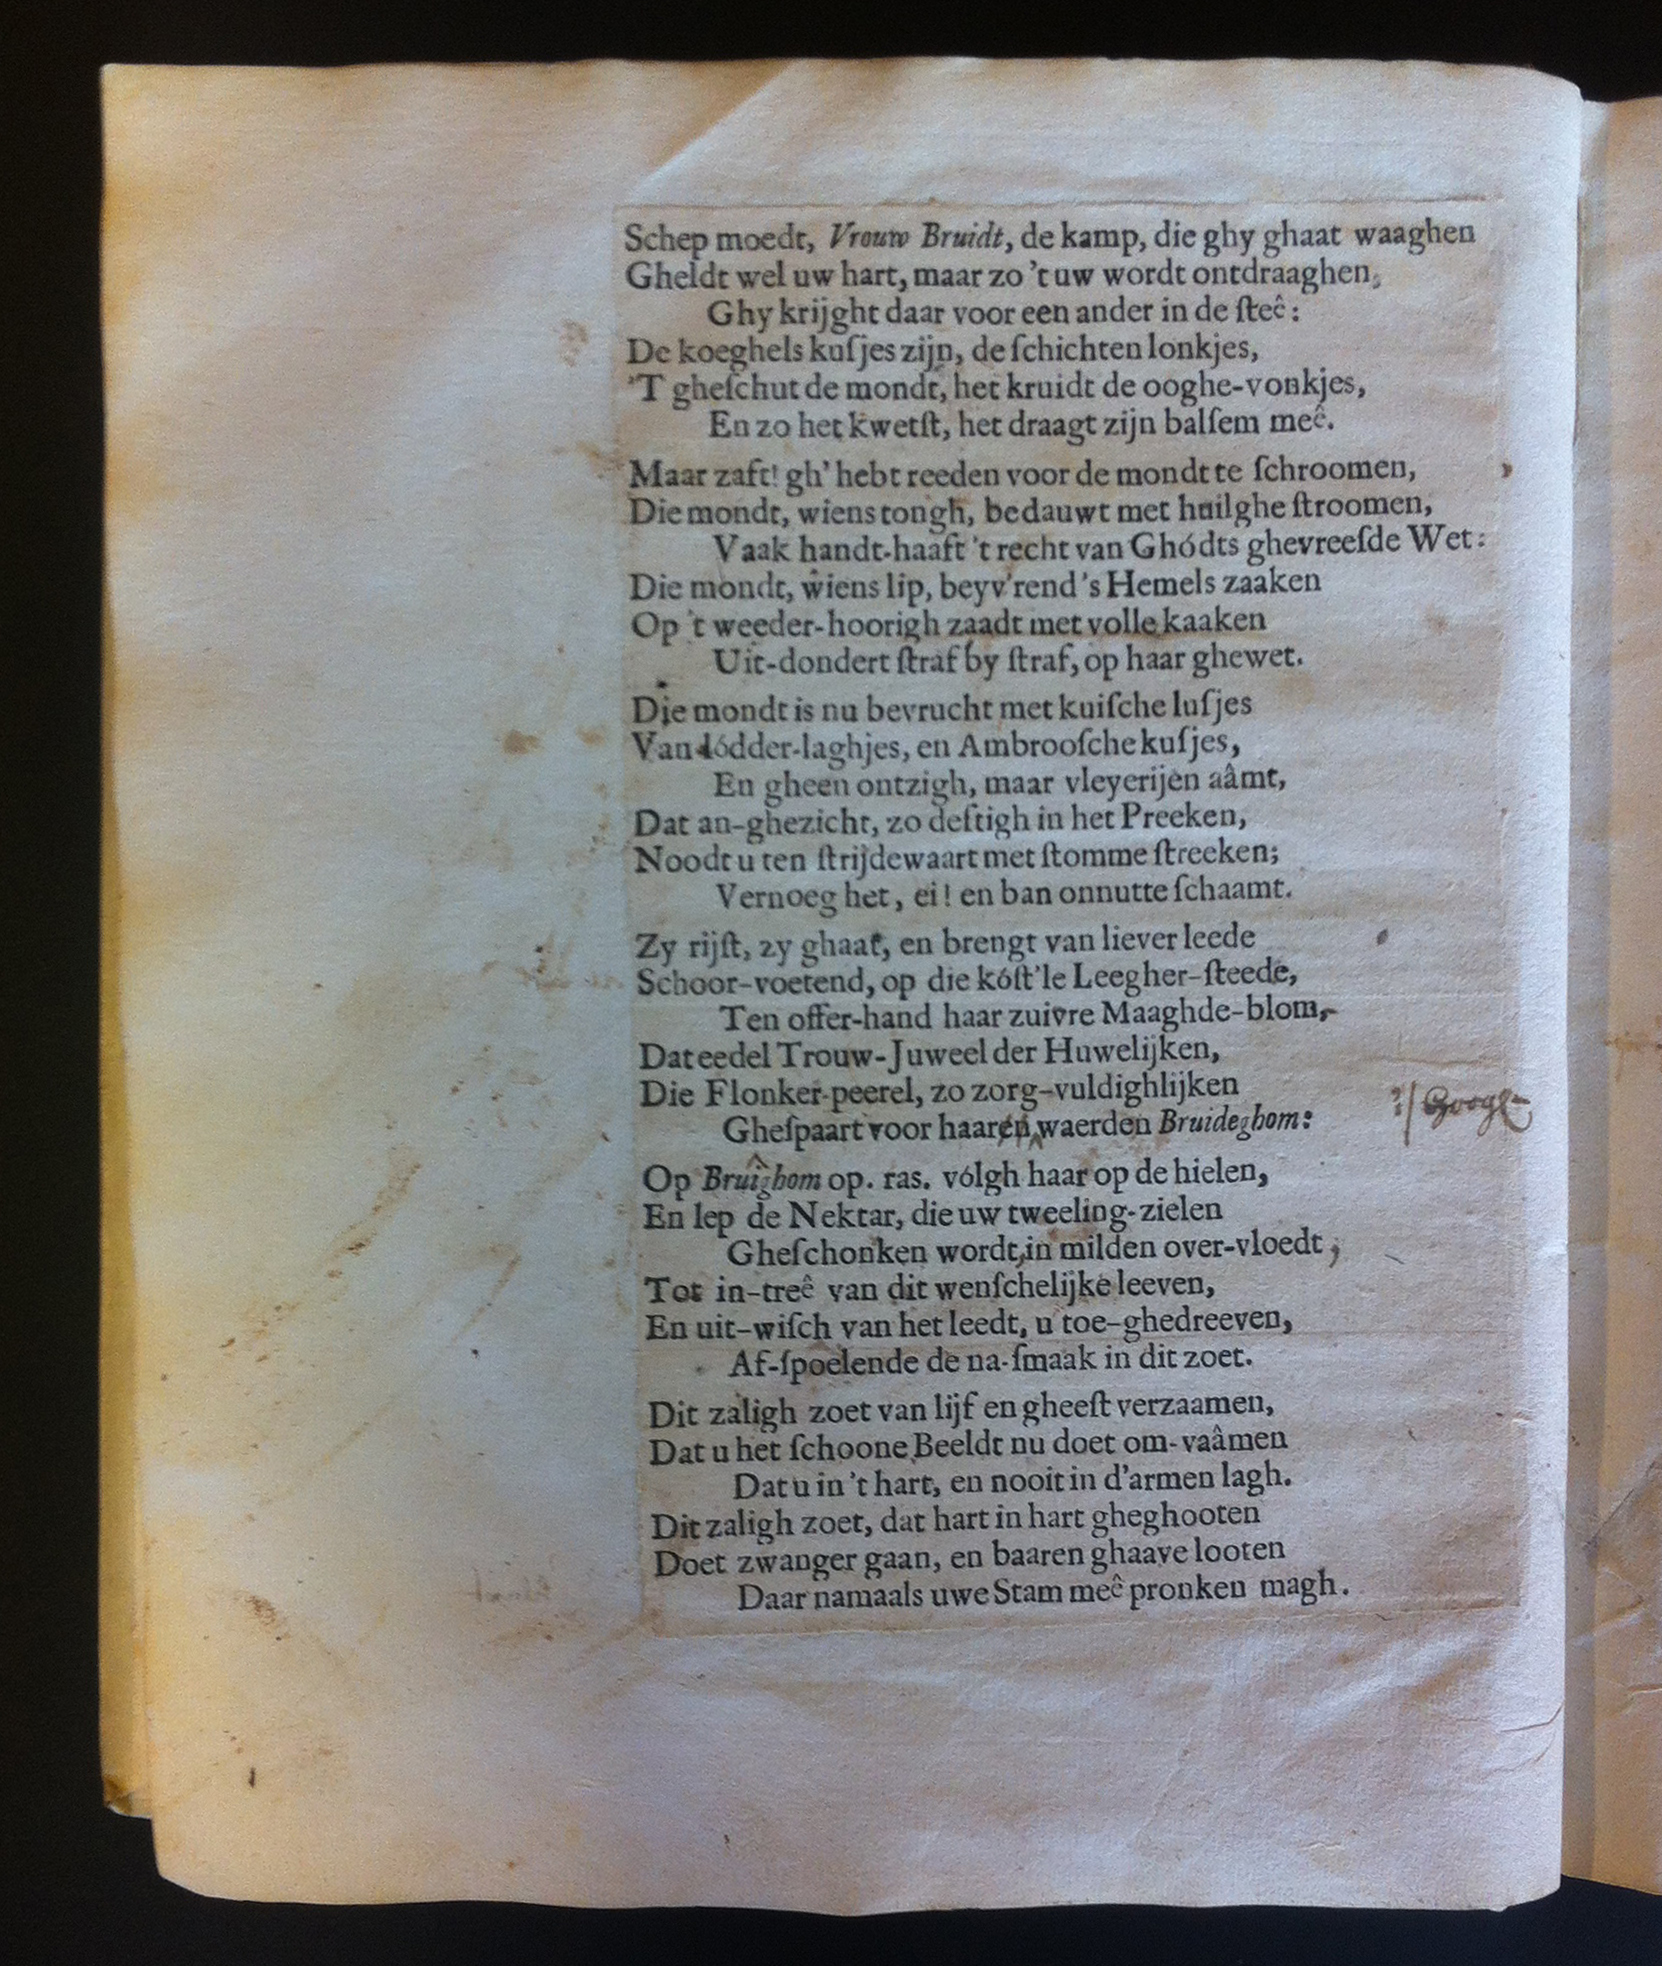 Schep moedt, Vrouw Bruidt, de kamp, die ghy ghaat waaghen
Gheldt wel uw hart, maar zo 't uw wordt ontdraaghen,
Ghy krijght daar voor een ander in de ſteê:
De koeghels kuſjes zijn, de ſchichten lonkjes,
'T gheſchut de mondt, het kruidt de ooghe-vonkjes,
En zo het kwetſt, het draagt zijn balſem meê.
Maar zaft! gh' hebt reeden voor de mondt te ſchroomen,
Die mondt, wiens tongh, bedauwt met huilghe ſtroomen,
Vaak handt-haaft 't recht van Ghódts ghevreeſde Wet:
Die mondt, wiens lip, beyv'rend 's Hemels zaaken
Op 't weeder-hoorigh zaadt met volle kaaken
Uit-dondert ſtraf by ſtraf, op haar ghewet.
Die mondt is nu bevrucht met kuiſche luſjes
Van lódder-laghjes, en Ambrooſche kuſjes,
En gheen ontzigh, maar vleyerijen aâmt,
Dat an-ghezicht, zo deſtigh in het Preeken,
Noodt u ten ſtrijdewaart met ſtomme ſtreeken;
Vernoeg het, ei! en ban onnutte ſchaamt.
Zy rijſt, zy ghaat, en brengt van liever leede
Schoor-voetend, op die kóſt'le Leegher-ſteede,
Ten offer-hand haar zuivre Maaghde-blom,
Dat eedel Trouw-Juweel der Huwelijken,
Die Flonker-peerel, zo zorg-vuldighlijken
Gheſpaart voor haaren waerden Bruideghom:
Op Bruîghom op. ras. vólgh haar op de hielen,
En lep de Nektar, die uw tweeling-zielen
Gheſchonken wordt, in milden over-vloedt,
Tot in-treê van dit wenſchelijke leeven,
En uit-wiſch van het leedt, u toe-ghedreeven,
Af-ſpoelende de na-ſmaak in dit zoet.
Dit zaligh zoet van lijf en gheeſt verzaamen,
Dat u het ſchoone Beeldt nu doet om-vaâmen
Dat u in 't hart, en nooit in d'armen lagh.
Dit zaligh zoet, dat hart in hart gheghooten
Doet zwanger gaan, en baaren ghaave looten
Daar namaals uwe Stam meê pronken magh.